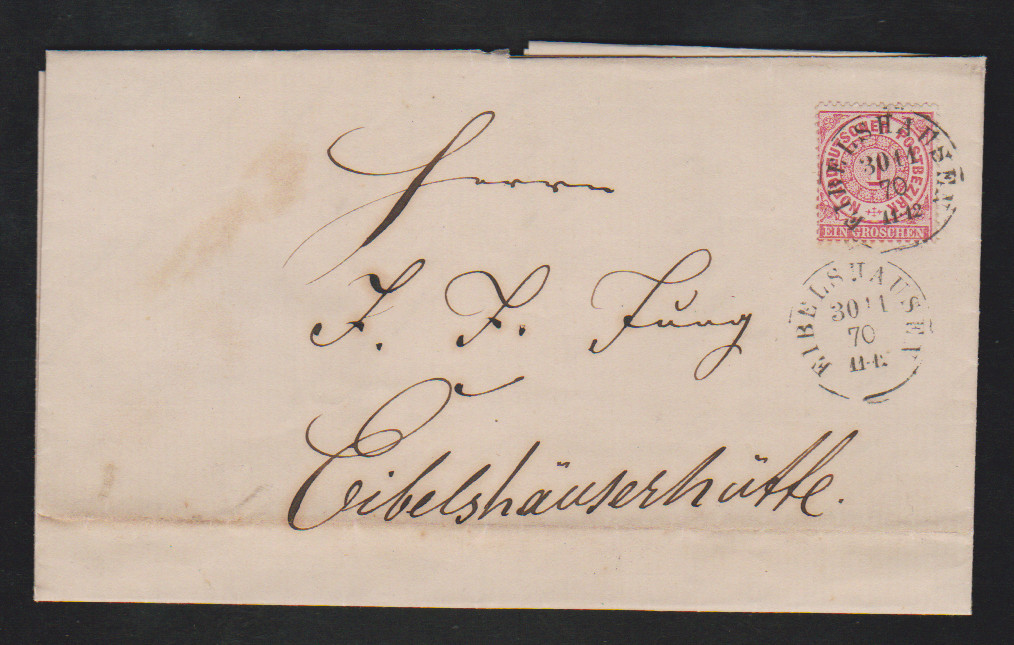 NORDDEUTSCHER POSTBEZIRK
1
EIN GROSCHEN
EIBELSHAUSEN
30 11
70
11-12
EIBELSHAUSEN
30 11
70
11-12
Herrn
J. J. Jung
Eibelshäuserhütte.